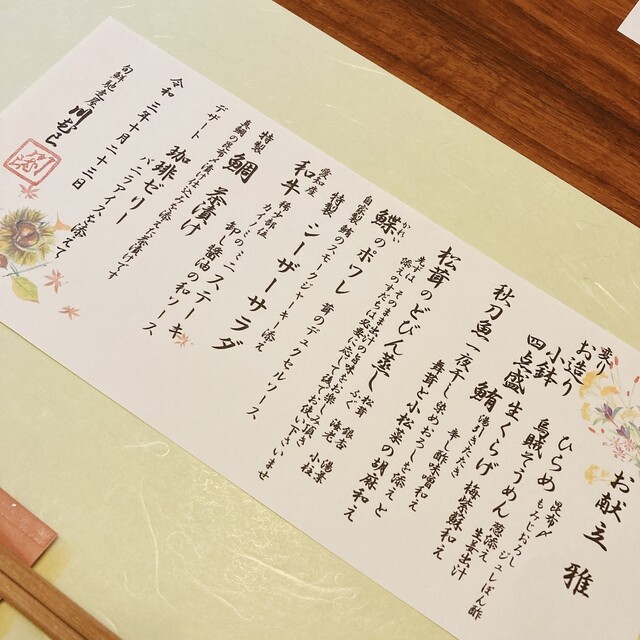 お献立 雅
変り
お造り
小鉢
四点盛
ひらめ 昆布〆
もみじおろし ジュレぽん酢
烏賊そうめん 葱添え 生姜出汁
生くらげ 梅紫蘇和え
鮪 湯引きたたき 辛し酢味噌和え
秋刀魚一夜干し 染めおろしを添え
舞茸と小松菜の胡麻和え
松茸のどびん蒸し 松茸 銀杏 湯葉
ふぐ 海老 小柱
先ずは、そのまま出汁の旨味をお楽しみ頂き
添えのすだちは必要に応じて後でお使い下さいませ
鰈のポワレ 茸のデュクセルソース、
かれい
自家製鯛のスモークジャーキー添え
特製 シーザーサラダ
愛知産
和牛 稀少部位
カイノミのミニステーキ
卸し醤油の和ソース
特製 鯛茶漬け
真鯛の昆布〆漬け込みを添えた茶漬けです
デザート 珈琲ゼリー
バニラアイスを添えて
令和 三年十月二十三日
旬鮮炭屋 川むら